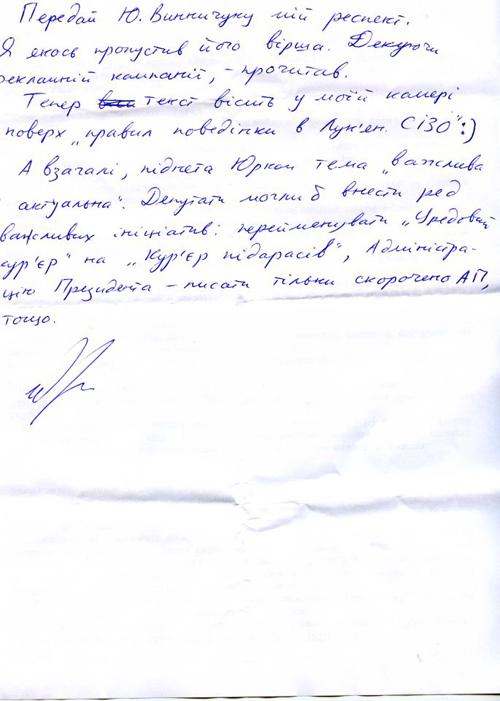 Передай Ю. Винничуку мій респект.
Я якось пропустив його вірша. Дякуючи
рекламній компанії, – прочитав.
Тепер текст висить у моїй камері
поверх „правил поведінки в Лук'ян. СІЗО":)
А взагалі, піднята Юрком тема „важлива
і актуальна". Депутати могли б внести ряд
важливих ініціатив: перейменувати „Урядовий
кур'єр" на „Кур'єр підарасів", Адміністра-
цію Президента – писати тільки скорочено АП,
тощо.